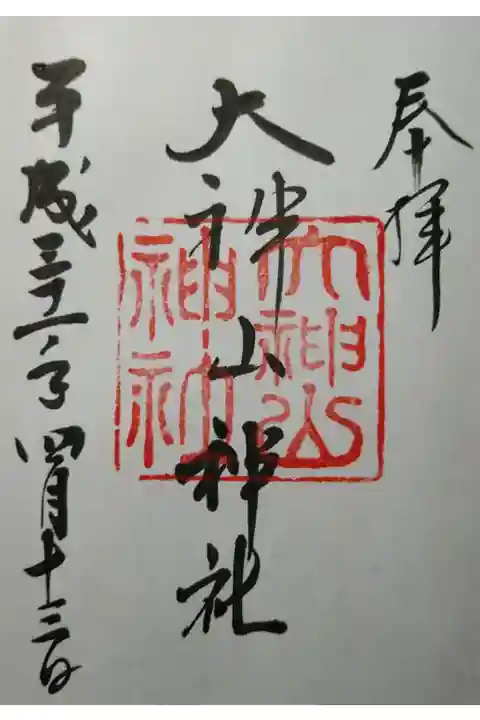 奉拝
大神山神社
大神山
神社
平成三十一年四月十三日